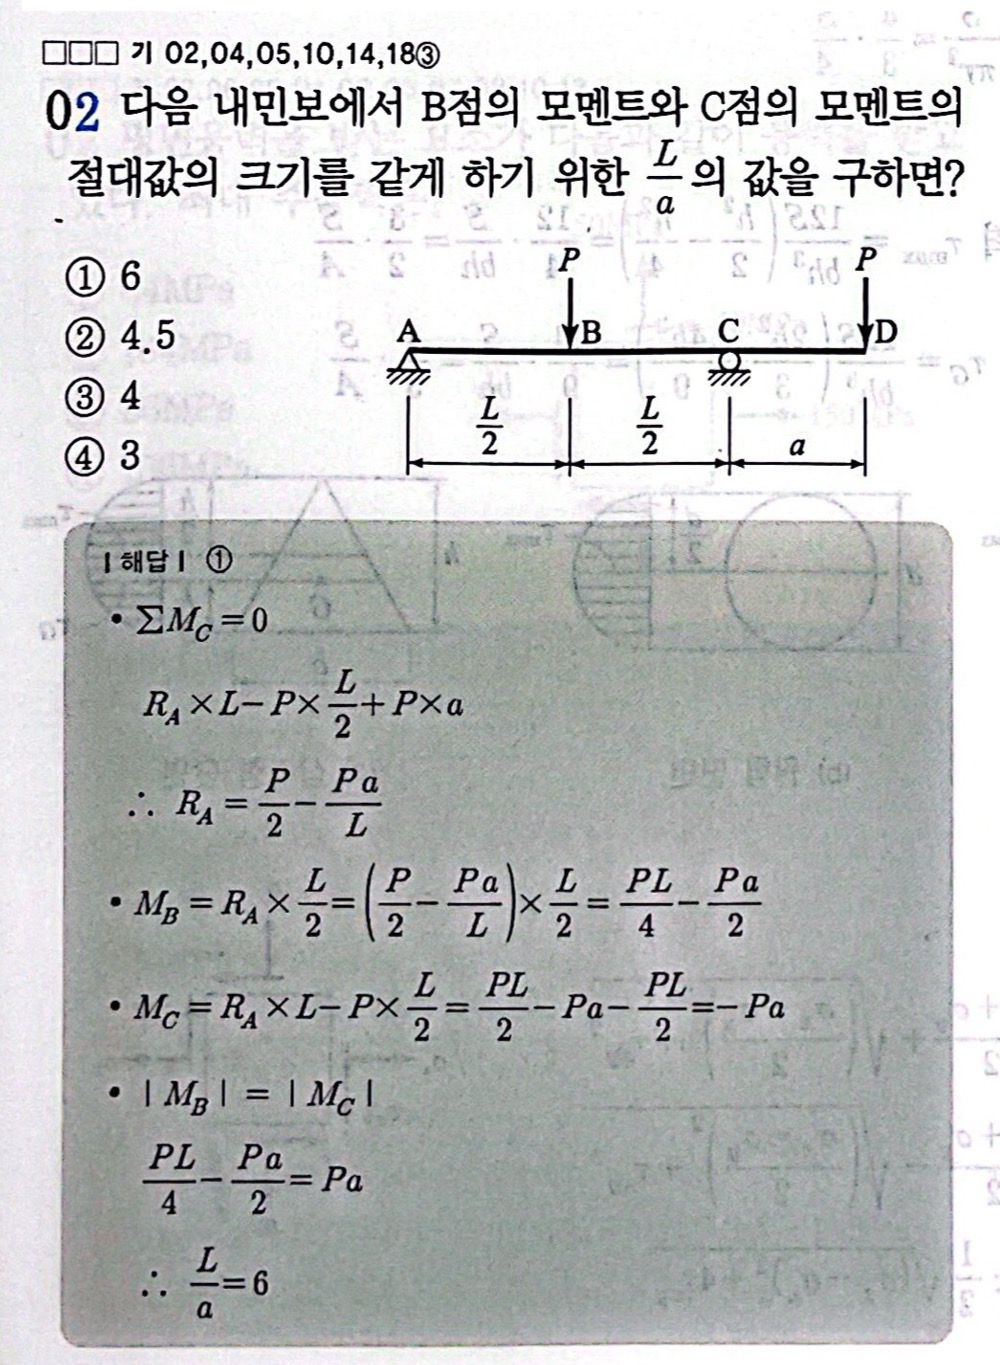 □□□ 기 02,04,05,10,14,18③
02 다음 내민보에서 B점의 모멘트와 C점의 모멘트의
절대값의 크기를 같게 하기 위한 L/a의 값을 구하면?
① 6
② 4.5
③ 4
④ 3
P P
A B C D
L/2 L/2 a
| 해답 | ①
• ΣM_C = 0
R_A × L − P × L/2 + P × a
∴ R_A = P/2 − Pa/L
• M_B = R_A × L/2 = (P/2 − Pa/L) × L/2 = PL/4 − Pa/2
• M_C = R_A × L − P × L/2 = PL/2 − Pa − PL/2 = − Pa
• | M_B | = | M_C |
PL/4 − Pa/2 = Pa
∴ L/a = 6